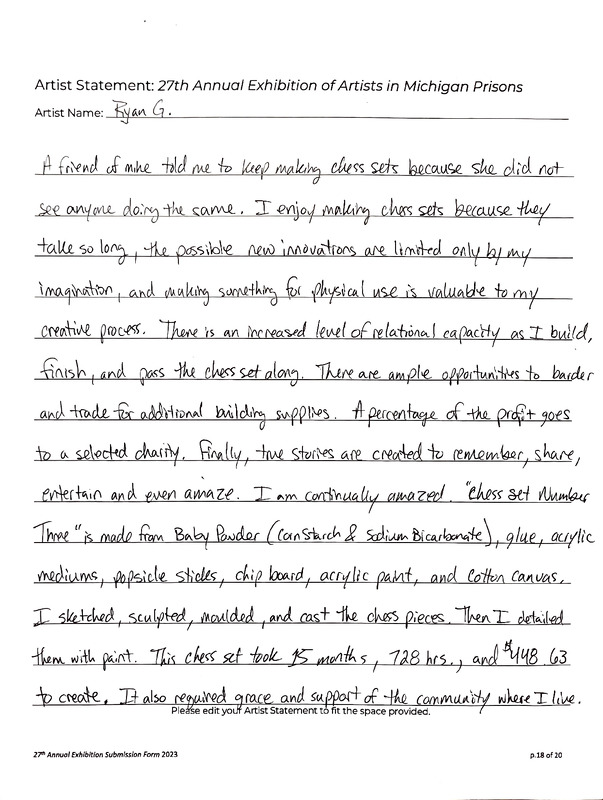 Artist Statement: 27th Annual Exhibition of Artists in Michigan Prisons
Artist Name: Ryan G.
A friend of mine told me to keep making chess sets because she did not
see anyone doing the same. I enjoy making chess sets because they
take so long, the possible new innovations are limited only by my
imagination, and making something for physical use is valuable to my
creative process. There is an increased level of relational capacity as I build,
finish, and pass the chess set along. There are ample opportunities to barder
and trade for additional building supplies. A percentage of the profit goes
to a selected charity. Finally, true stories are created to remember, share,
entertain and even amaze. I am continually amazed. "Chess Set Number
Three" is made from Baby Powder (Corn Starch & Sodium Bicarbonate), glue, acrylic
mediums, popsicle sticks, chip board, acrylic paint, and cotton canvas.
I sketched, sculpted, moulded, and cast the chess pieces. Then I detailed
them with paint. This chess set took 15 months, 728 hrs., and $448.63
to create. It also required grace and support of the community where I live.
Please edit your Artist Statement to fit the space provided.
27th Annual Exhibition Submission Form 2023
p.18 of 20